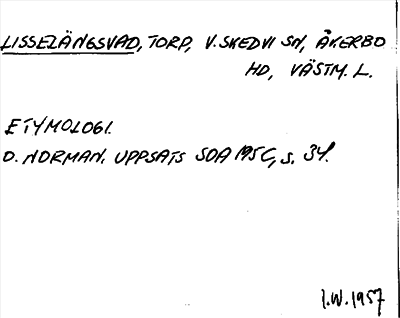 LISSELÄNGSVAD, TORP, V. SKEDVI SN, ÅKERBO
HD, VÄSTM. L.
ETYMOLOGI.
O. NORMAN. UPPSATS SOA 1956, s. 34.
I.W. 1957